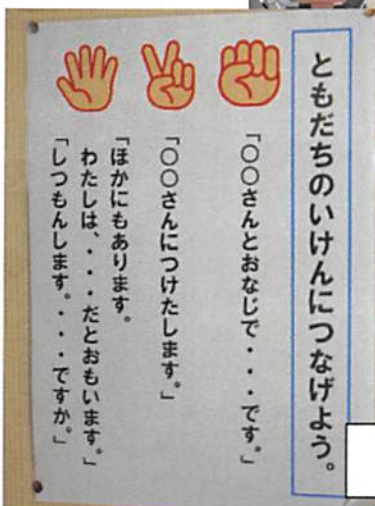 ともだちのいけんにつなげよう。
「〇〇さんとおなじで・・・です。」
「〇〇さんにつけたします。」
「ほかにもあります。
わたしは、・・・だとおもいます。」
「しつもんします。・・・ですか。」